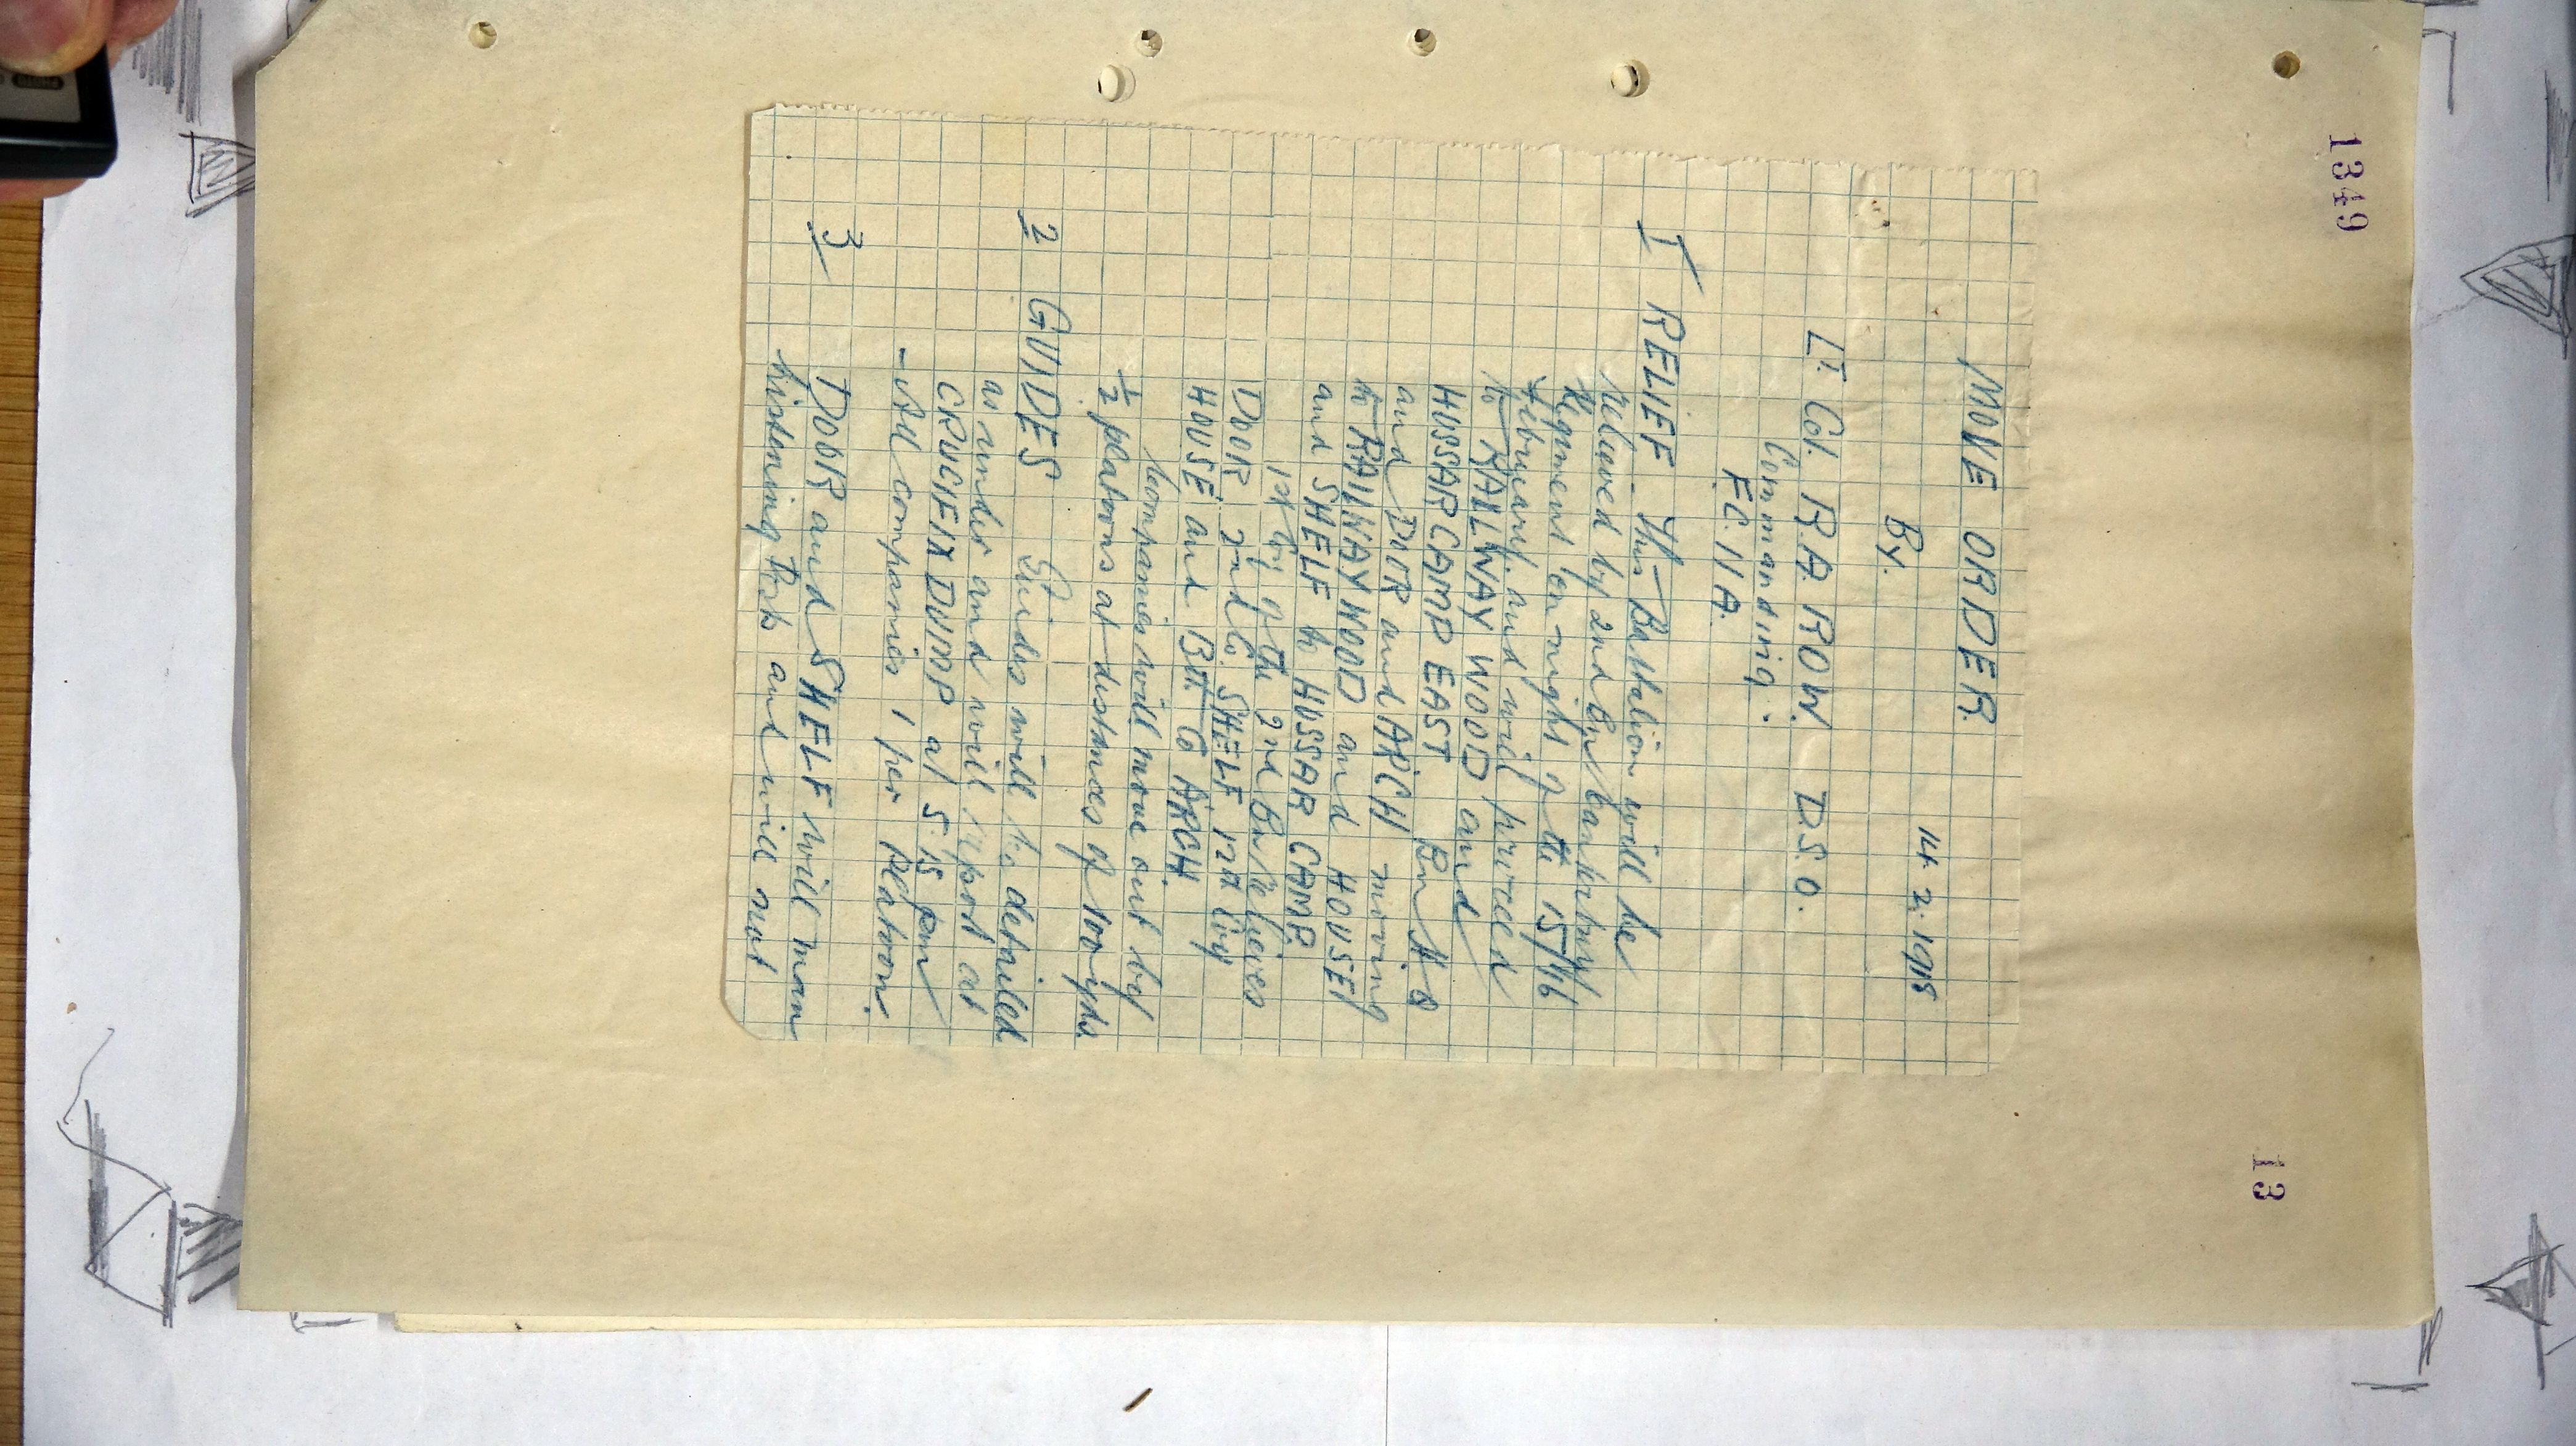 1349
13
MOVE ORDER.
14. 2. 1918
By.
Lt. Col. R.A. ROW. D.S.O.
Commanding.
I RELIEF - This Battalion will be
relieved by 2nd Bn Canterbury
Regiment on night of the 15/16
February, and will proceed
to RAILWAY WOOD and
HUSSAR CAMP EAST Bn H.Q
and DOOR and ARCH moving
to RAILWAY WOOD and HOUSE
and SHELF to HUSSAR CAMP.
1st Coy of the 2nd Bn relieves
DOOR 2nd Co. SHELF 12th Coy
HOUSE and 13th Co ARCH.
Companies will move out by
½ platoons at distances of 100 yds
2 GUIDES Guides will be detailed
as under and will report at
CRUCIFIX DUMP at 5.15 pm
- All companies 1 per Platoon.
3 DOOR and SHELF will man
listening Posts and will not